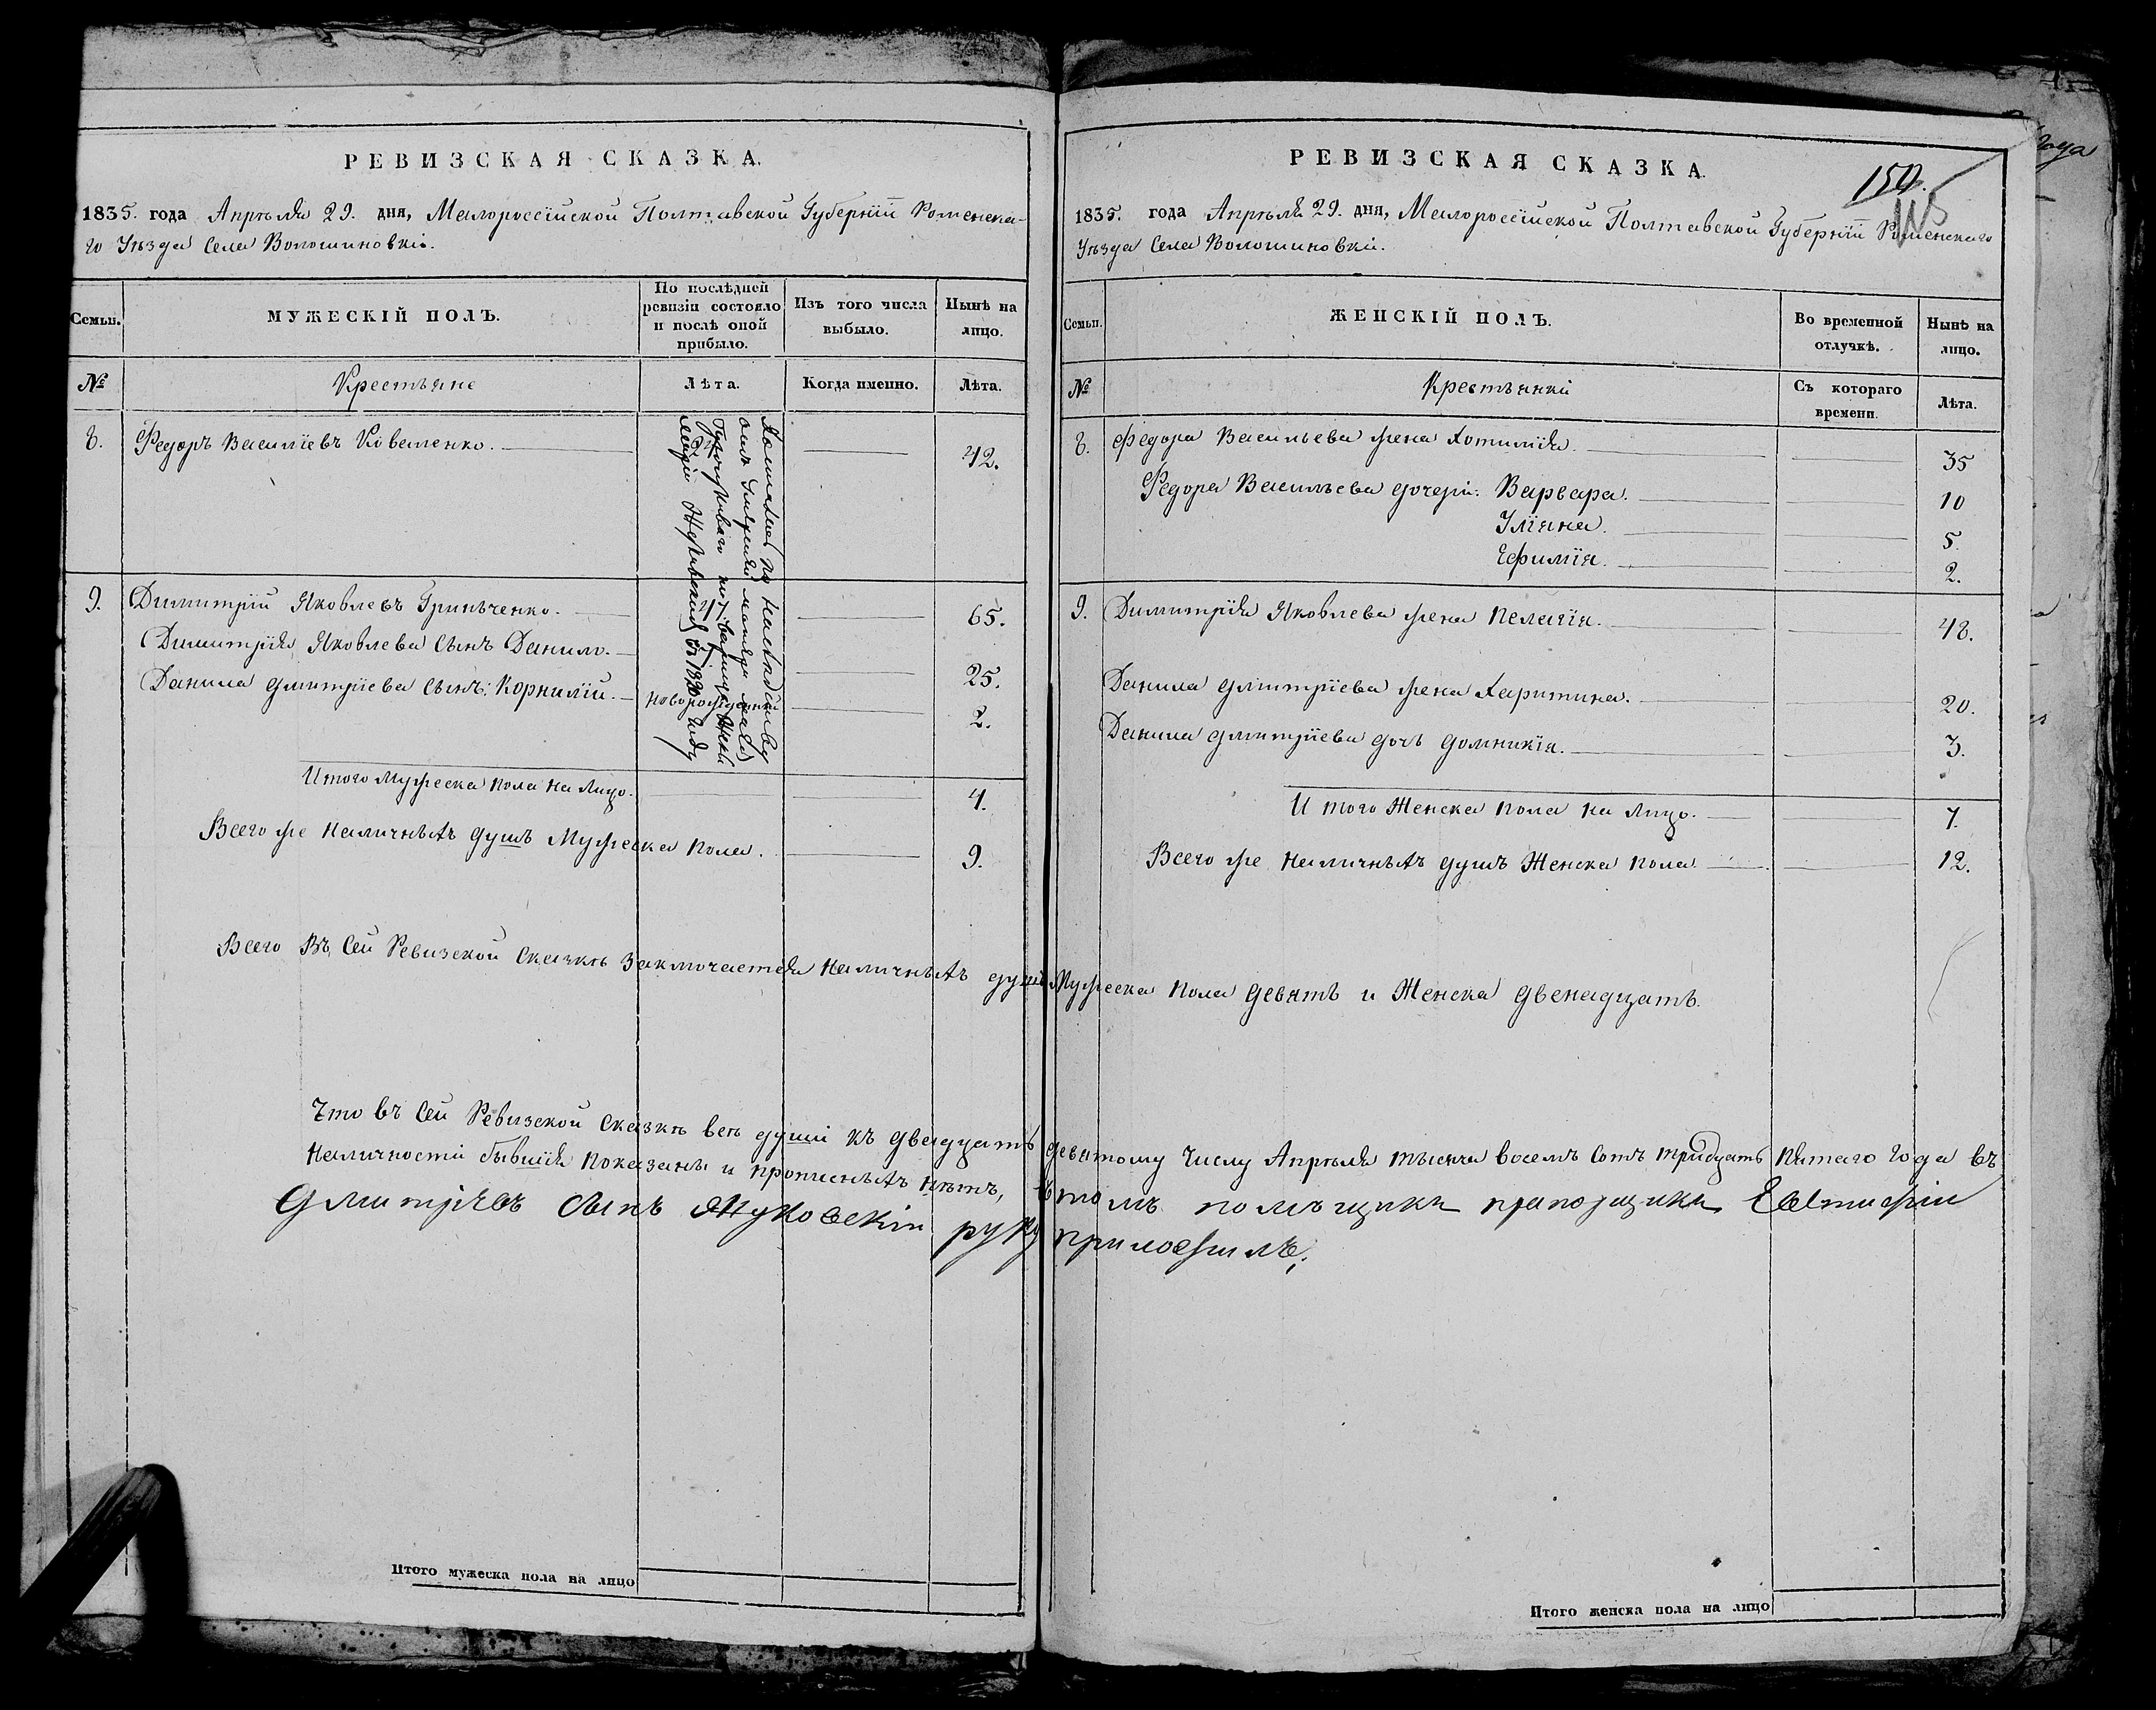 РЕВИЗСКАЯ СКАЗКА.
1835. года Апрѣля 29. дня, Малороссїйской Полтавской Губернїи Роменска-
го Уѣзда Села Волошиновки.
Семьи.
МУЖЕСКІЙ ПОЛЪ.
По послѣдней ревизіи состояло и послѣ оной прибыло.
Изъ того числа выбыло.
Нынѣ на лицо.
№
Крестьяне
Лѣта.
Когда именно.
Лѣта.
8. Федоръ Василїевъ Коваленко. 42.
Досталось по наслѣдству
отъ умершей
въ 1830 году
9. Димитрїй Яковлевъ Гринѣченко. 65.
Димитрїя Яковлева сынъ Данило. 25.
Данила Дмитрїева сынъ: Корнилїй. новорожденный 2.
Итого Мужеска пола на Лицо. 4.
Всего же наличныхъ душъ Мужеска пола. 9.
Итого мужеска пола на лицо
РЕВИЗСКАЯ СКАЗКА
150.
115
1835. года Апрѣля 29. дня, Малороссїйской Полтавской Губернїи Роменскаго
Уѣзда Села Волошиновки.
Семьи.
ЖЕНСКІЙ ПОЛЪ.
Во временной отлучкѣ.
Нынѣ на лицо.
№
Крестьянки
Съ котораго времени.
Лѣта.
8. Федора Васильева жена Хотимїя. 35
Федора Васильева дочери: Варвара. 10
Улїяна. 5.
Ефимїя. 2.
9. Димитрїя Яковлева жена Пелагїя. 48.
Данила Дмитрїева жена Харитина. 20.
Данила Дмитрїева дочь Домникїя. 3.
И того Женска пола на Лицо. 7.
Всего же наличныхъ душъ Женска пола 12.
Всего Въ Сей Ревизской Сказкѣ Заключается наличныхъ душъ Мужеска пола девять и Женска двенадцать.
Что въ Сей Ревизской Сказкѣ всѣ души къ двадцать девятому Числу Апрѣля тысяча восемъ сотъ тридцать пятаго Года въ
Наличности бывшїя показаны и прописныхъ нѣтъ, въ томъ помѣщикъ прапорщикъ Евтифій
Дмитрїевъ сынъ Жуковскїй руку приложилъ.
Итого женска пола на лицо